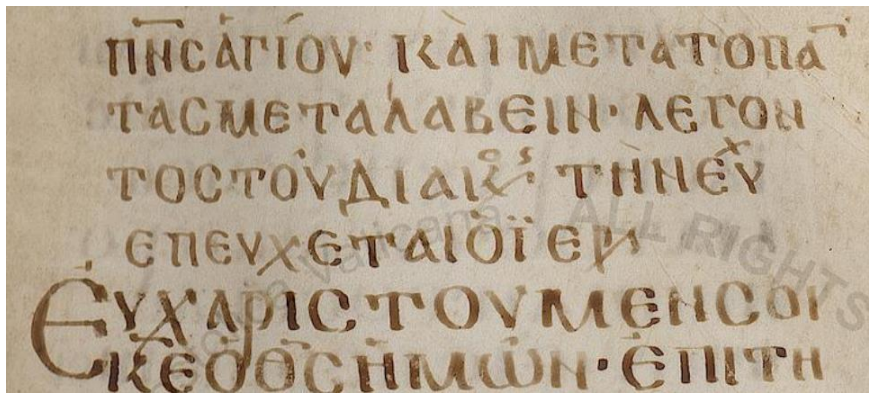 ΠΝ̅C ἉΓΊΟΥ· ΚΑῚ ΜΕΤΑ ΤΟ ΠΑ̅
ΤΑC ΜΕΤΑΛΑΒΕΙΝ· ΛΕΓΟΝ
ΤΟC ΤΟΥ ΔΙΑΚ, ΤῊΝ ΕΥΧ
ΕΠΕΥΧΕΤΑΙ Ὁ ΪΕΡ
ΕΥΧΑΡΙCΤΟΥΜΕΝ CΟΙ
Κ̅Ε Ὁ Θ̅C ἩΜΩ͂Ν· ἘΠΙ ΤΗ
ALL RIGHTS